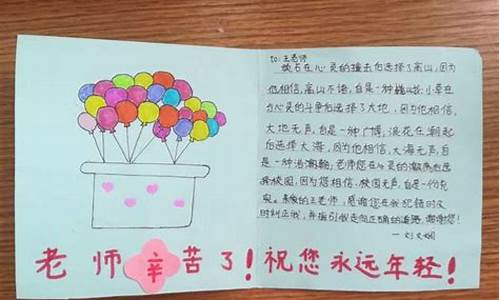 to:王老师
顽石在心灵的撞击后选择了高山,因为
他相信,高山不语,自是一种巍峨;小草在
为心灵的斗争后选择了大地,因为他相信,
大地无声,自是一种广博;浪花在潮起
后选择大海,因为他相信,大海无声,自
是一种浩瀚;老师您在心灵的潮涌后选
择校园,因为您相信,校园无声,自是一份充
实。亲爱的王老师,感谢您在我犯错时及
时纠正我,并指引我走向正确的道路,谢谢您!
老师辛苦了!祝您永远年轻!